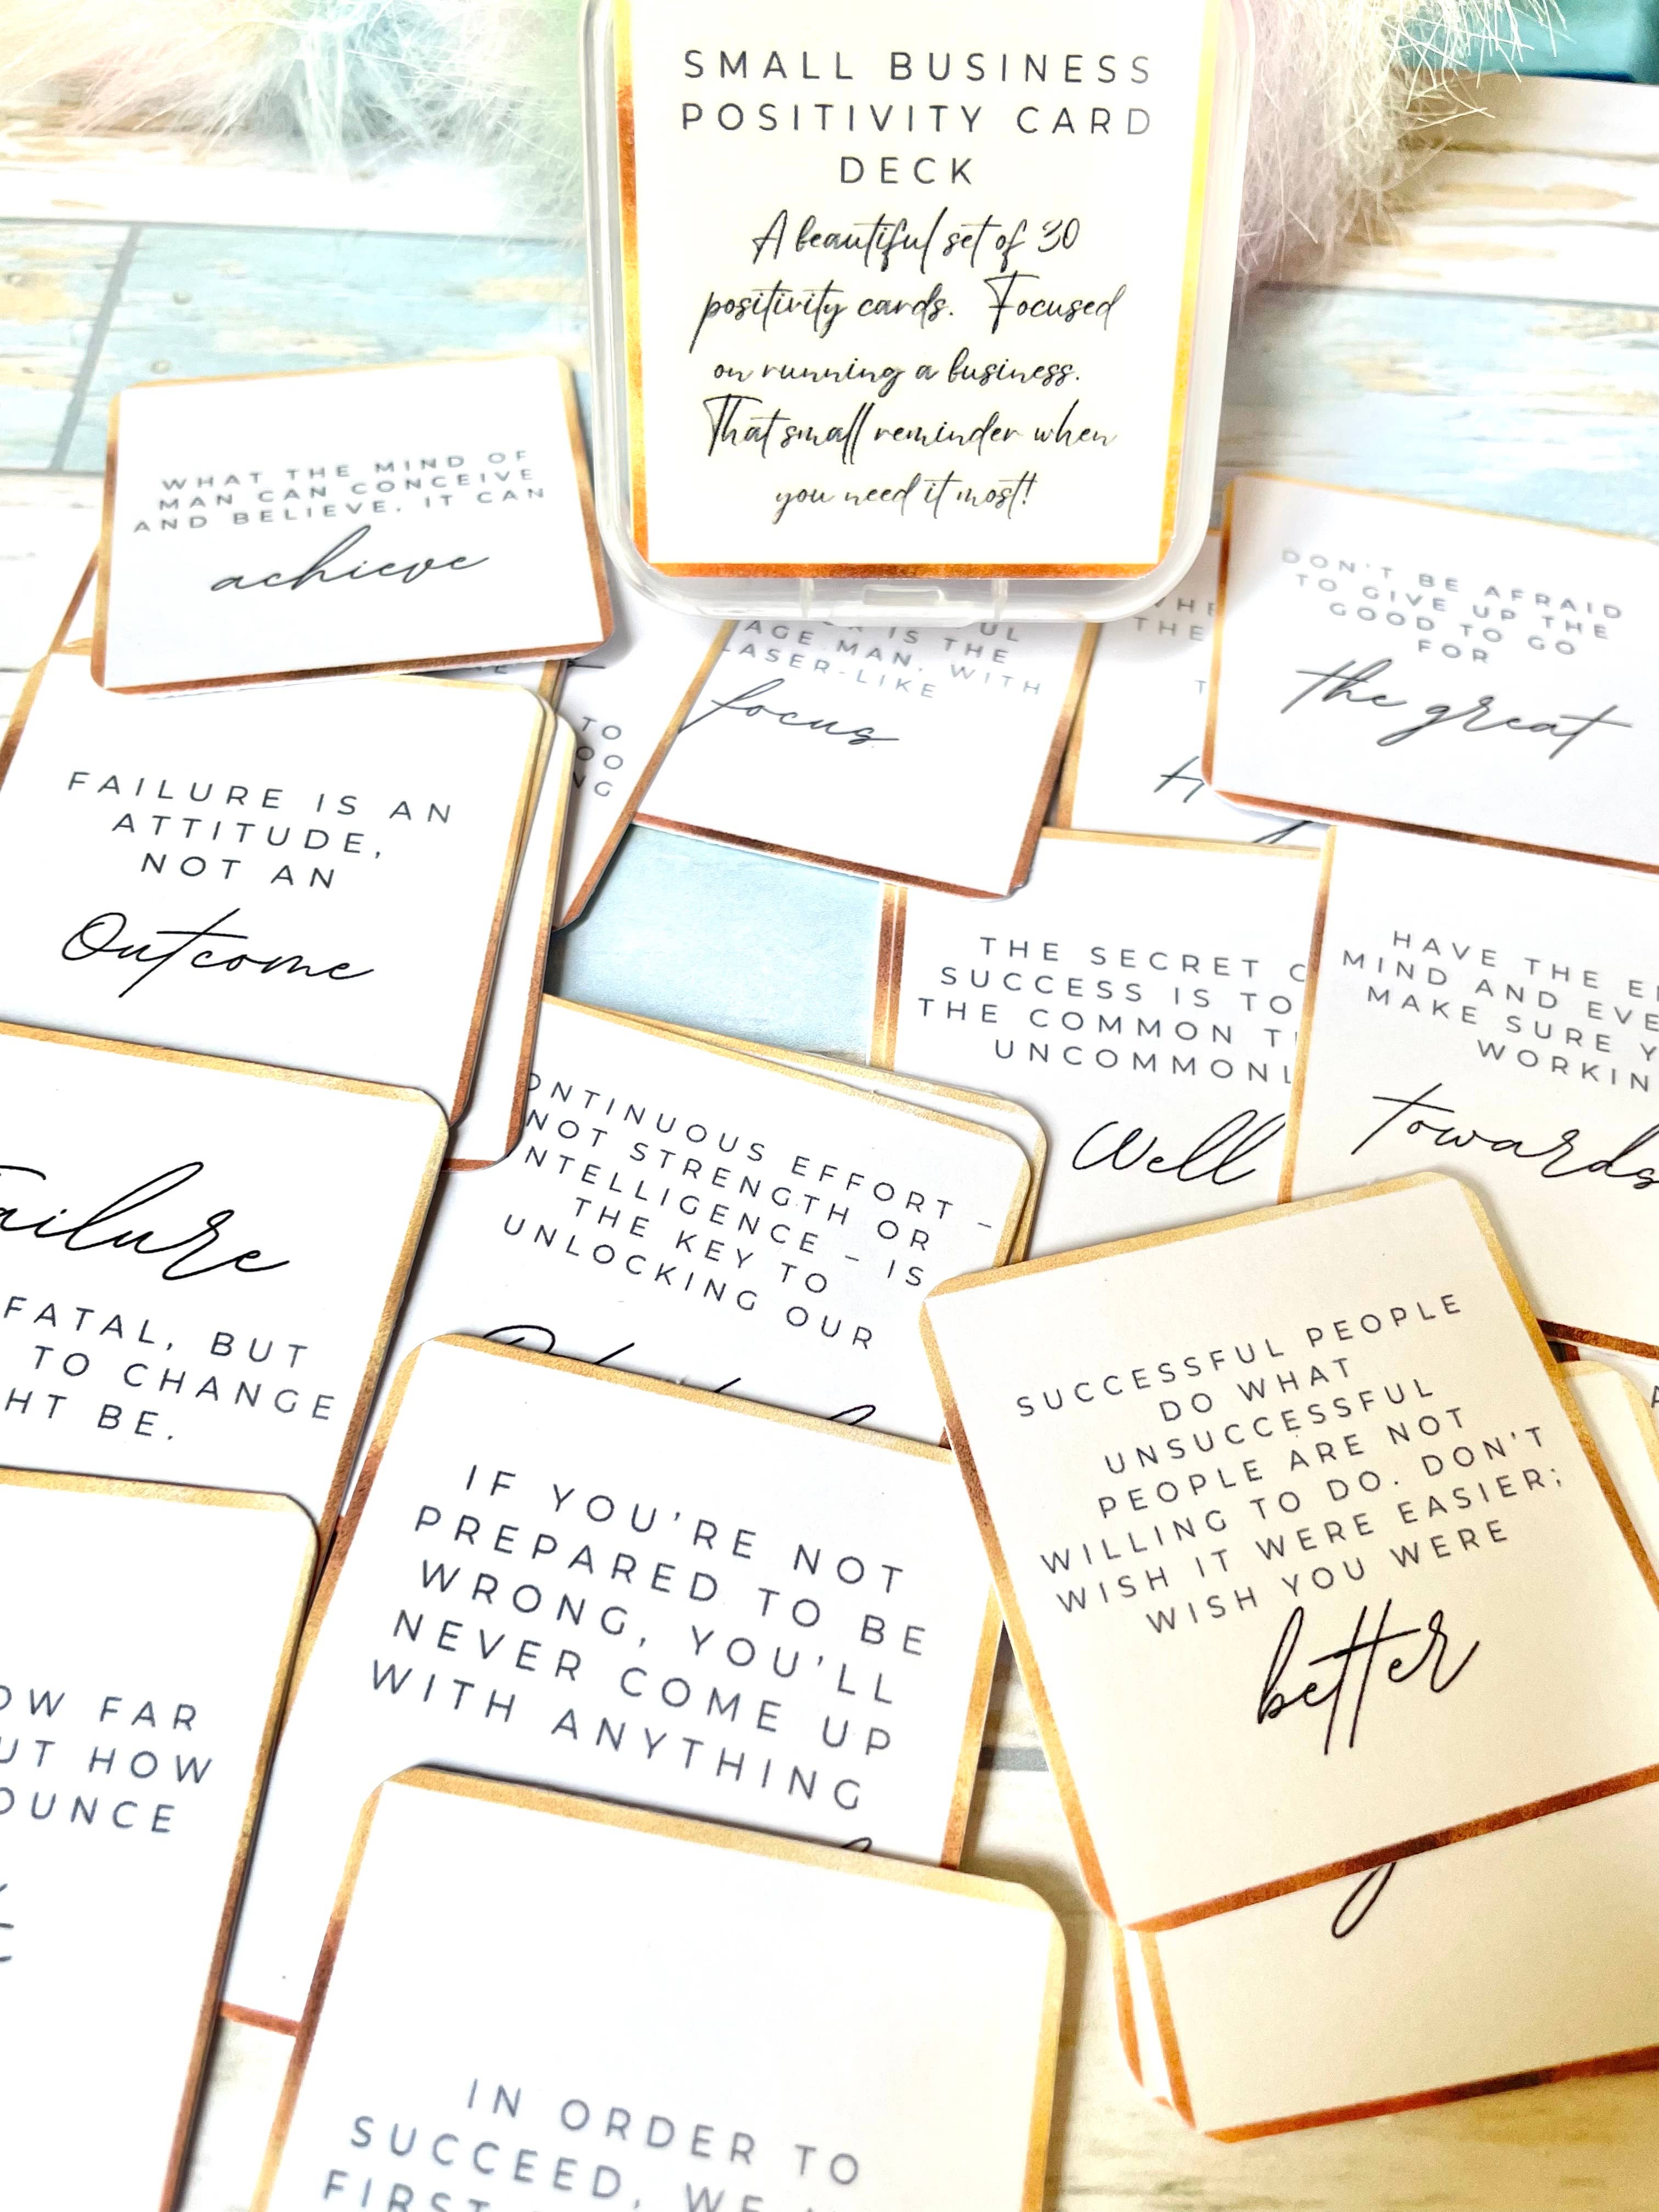 SMALL BUSINESS
POSITIVITY CARD
DECK
A beautiful set of 30
positivity cards. Focused
on running a business.
That small reminder when
you need it most!
WHAT THE MIND OF
MAN CAN CONCEIVE
AND BELIEVE, IT CAN
achieve
IS THE
AGE MAN, WITH
LASER-LIKE
focus
THE
DON'T BE AFRAID
TO GIVE UP THE
GOOD TO GO
FOR
the great
TO
FAILURE IS AN
ATTITUDE,
NOT AN
Outcome
THE SECRET
SUCCESS IS TO
THE COMMON
UNCOMMONL
Well
HAVE THE
MIND AND EVE
MAKE SURE Y
WORKIN
towards
ONTINUOUS EFFORT -
NOT STRENGTH OR
NTELLIGENCE - IS
THE KEY TO
UNLOCKING OUR
Failure
FATAL, BUT
TO CHANGE
HT BE.
SUCCESSFUL PEOPLE
DO WHAT
UNSUCCESSFUL
PEOPLE ARE NOT
WILLING TO DO. DON'T
WISH IT WERE EASIER;
WISH YOU WERE
better
IF YOU'RE NOT
PREPARED TO BE
WRONG, YOU'LL
NEVER COME UP
WITH ANYTHING
OW FAR
UT HOW
OUNCE
IN ORDER TO
SUCCEED, WE
FIRST